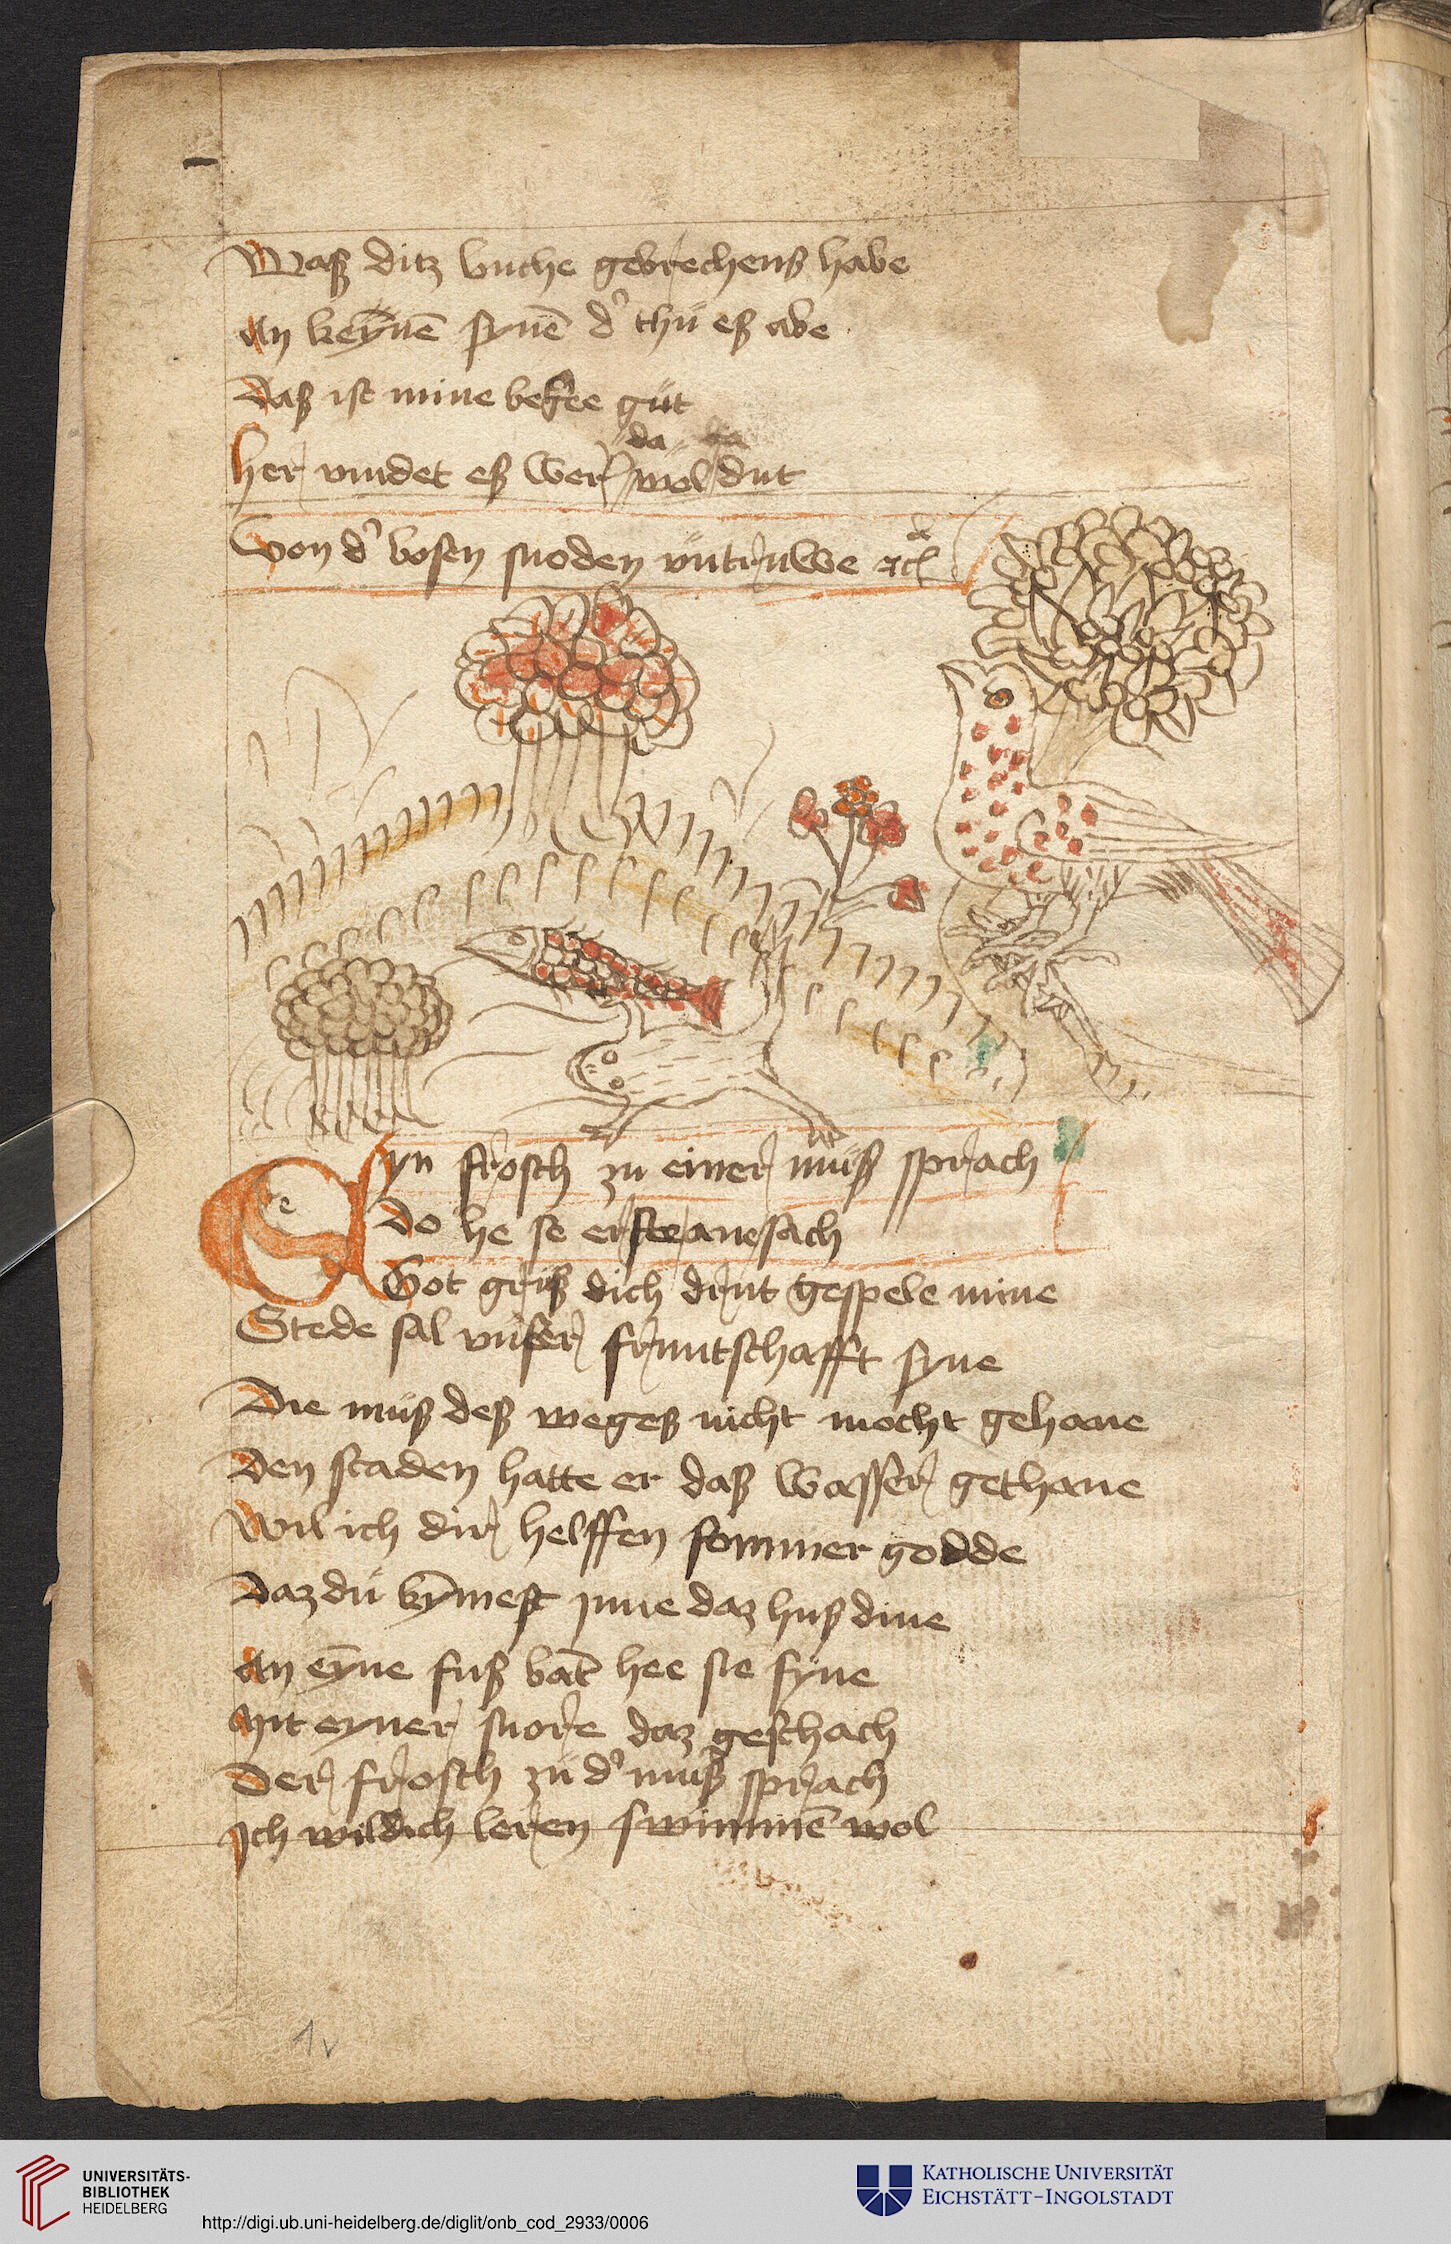 Waß ditz buche gebrechenß habe
An keynē synē d' thü eß abe
Daß ist mine bete güt
her vindet eß wer da wol dut
Von d' bosen snoden vntruwe
Eyn frosch zu einer müß sprach
Do he se erst anesach
Got gruß dich drut gespele mine
Stede sal vnser fruntschafft syne
Die müß deß wegeß nicht mocht gehane
Den scaden hatte er daß wasser gethane
Wil ich dir helffen sommer godde
Daz du kȳmest jnne daz huß dine
An eyne fuß bāt hee sie syne
Mit eyner snore daz geschach
Der frosch zü d' müß sprach
Ich wil dich leren swimmē wol
1v
UNIVERSITÄTS-
BIBLIOTHEK
HEIDELBERG
http://digi.ub.uni-heidelberg.de/diglit/onb_cod_2933/0006
KATHOLISCHE UNIVERSITÄT
EICHSTÄTT-INGOLSTADT